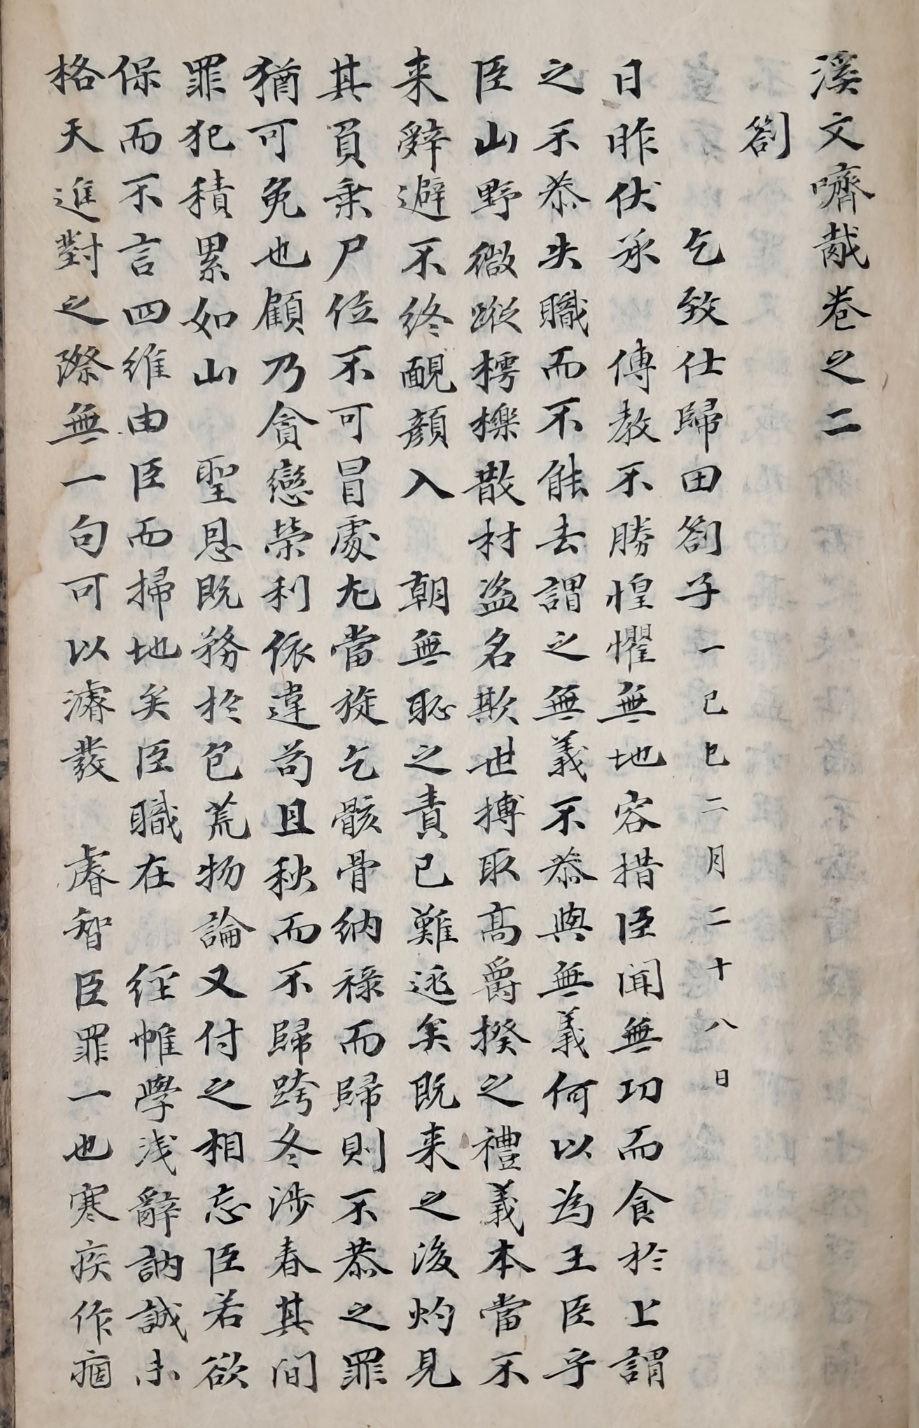 溪文嚌胾卷之二
劄
乞致仕歸田劄子一 己巳二月二十八日
日昨伏承 傳教不勝惶懼無地容措臣聞無功而食於上謂
之不恭失職而不能去謂之無義不恭與無義何以為王臣乎
臣山野微蹤樗櫟散材盜名欺世搏取高爵揆之禮義本當不
来辭避不終靦顔入 朝無恥之責已難逃矣既来之後灼見
其負乗尸位不可冒處尤當旋乞骸骨納祿而歸則不恭之罪
猶可免也顧乃貪戀榮利依違苟且秋而不歸跨冬涉春其間
罪犯積累如山 聖恩既務於包荒物論又付之相忘臣若欲
保而不言四維由臣而掃地矣臣職在 經帷學浅辭訥誠未
格天進對之際無一句可以濬發 睿智臣罪一也寒疾作痼